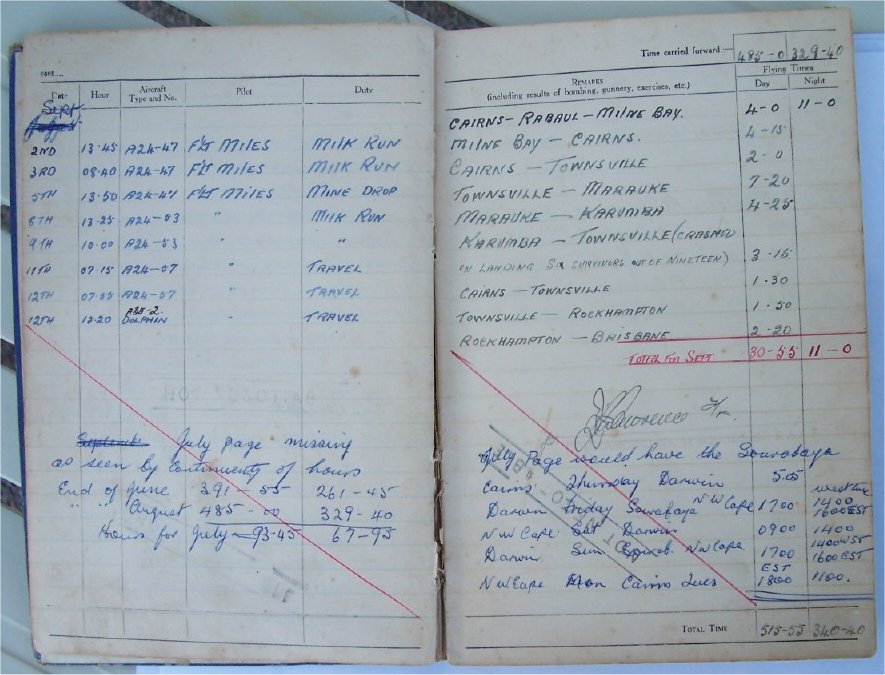 Date Hour Aircraft Type and No. Pilot Duty
Sept
2ND 13·45 A24-47 F/Lt MILES MILK RUN
3RD 08·40 A24-47 F/Lt MILES MILK RUN
5TH 13·50 A24-47 F/Lt MILES MINE DROP
8TH 13·25 A24-53 " MILK RUN
9TH 10·00 A24-53 " "
11TH 07·15 A24-57 " TRAVEL
12TH 07·55 A24-57 " TRAVEL
12TH 12·20 DOLPHIN " TRAVEL
September July page missing
as seen by Continuenty of hours
End of June 391-55 261-45
" " August 485-00 329-40
Hours for July - 93-45 67-95
Time carried forward :— 485-0 329-40
Remarks
(including results of bombing, gunnery, exercises, etc.)
Flying Times
Day Night
CAIRNS - RABAUL - MILNE BAY. 4-0 11-0
MILNE BAY - CAIRNS. 4-15
CAIRNS - TOWNSVILLE 2-0
TOWNSVILLE - MARAUKE 7-20
MARAUKE - KARUMBA 4-25
KARUMBA - TOWNSVILLE (CRASHED
ON LANDING SIX SURVIVORS OUT OF NINETEEN) 3-15
CAIRNS - TOWNSVILLE 1·30
TOWNSVILLE - ROCKHAMPTON 1·50
ROCKHAMPTON - BRISBANE 2-20
TOTAL FOR SEPT 30-55 11-0
July Page would have the Sourabaya
Cairns Thursday Darwin 5.05
Darwin Friday Sourabaya NW Cape 1700 1400
1600 EST
NW Cape Sat Darwin 0900 1400
1400 WST
Darwin Sun NW Cape 1700 1600 EST
EST
NW Cape Mon Cairns Tues 1800 1100.
Total Time 515-55 340-40